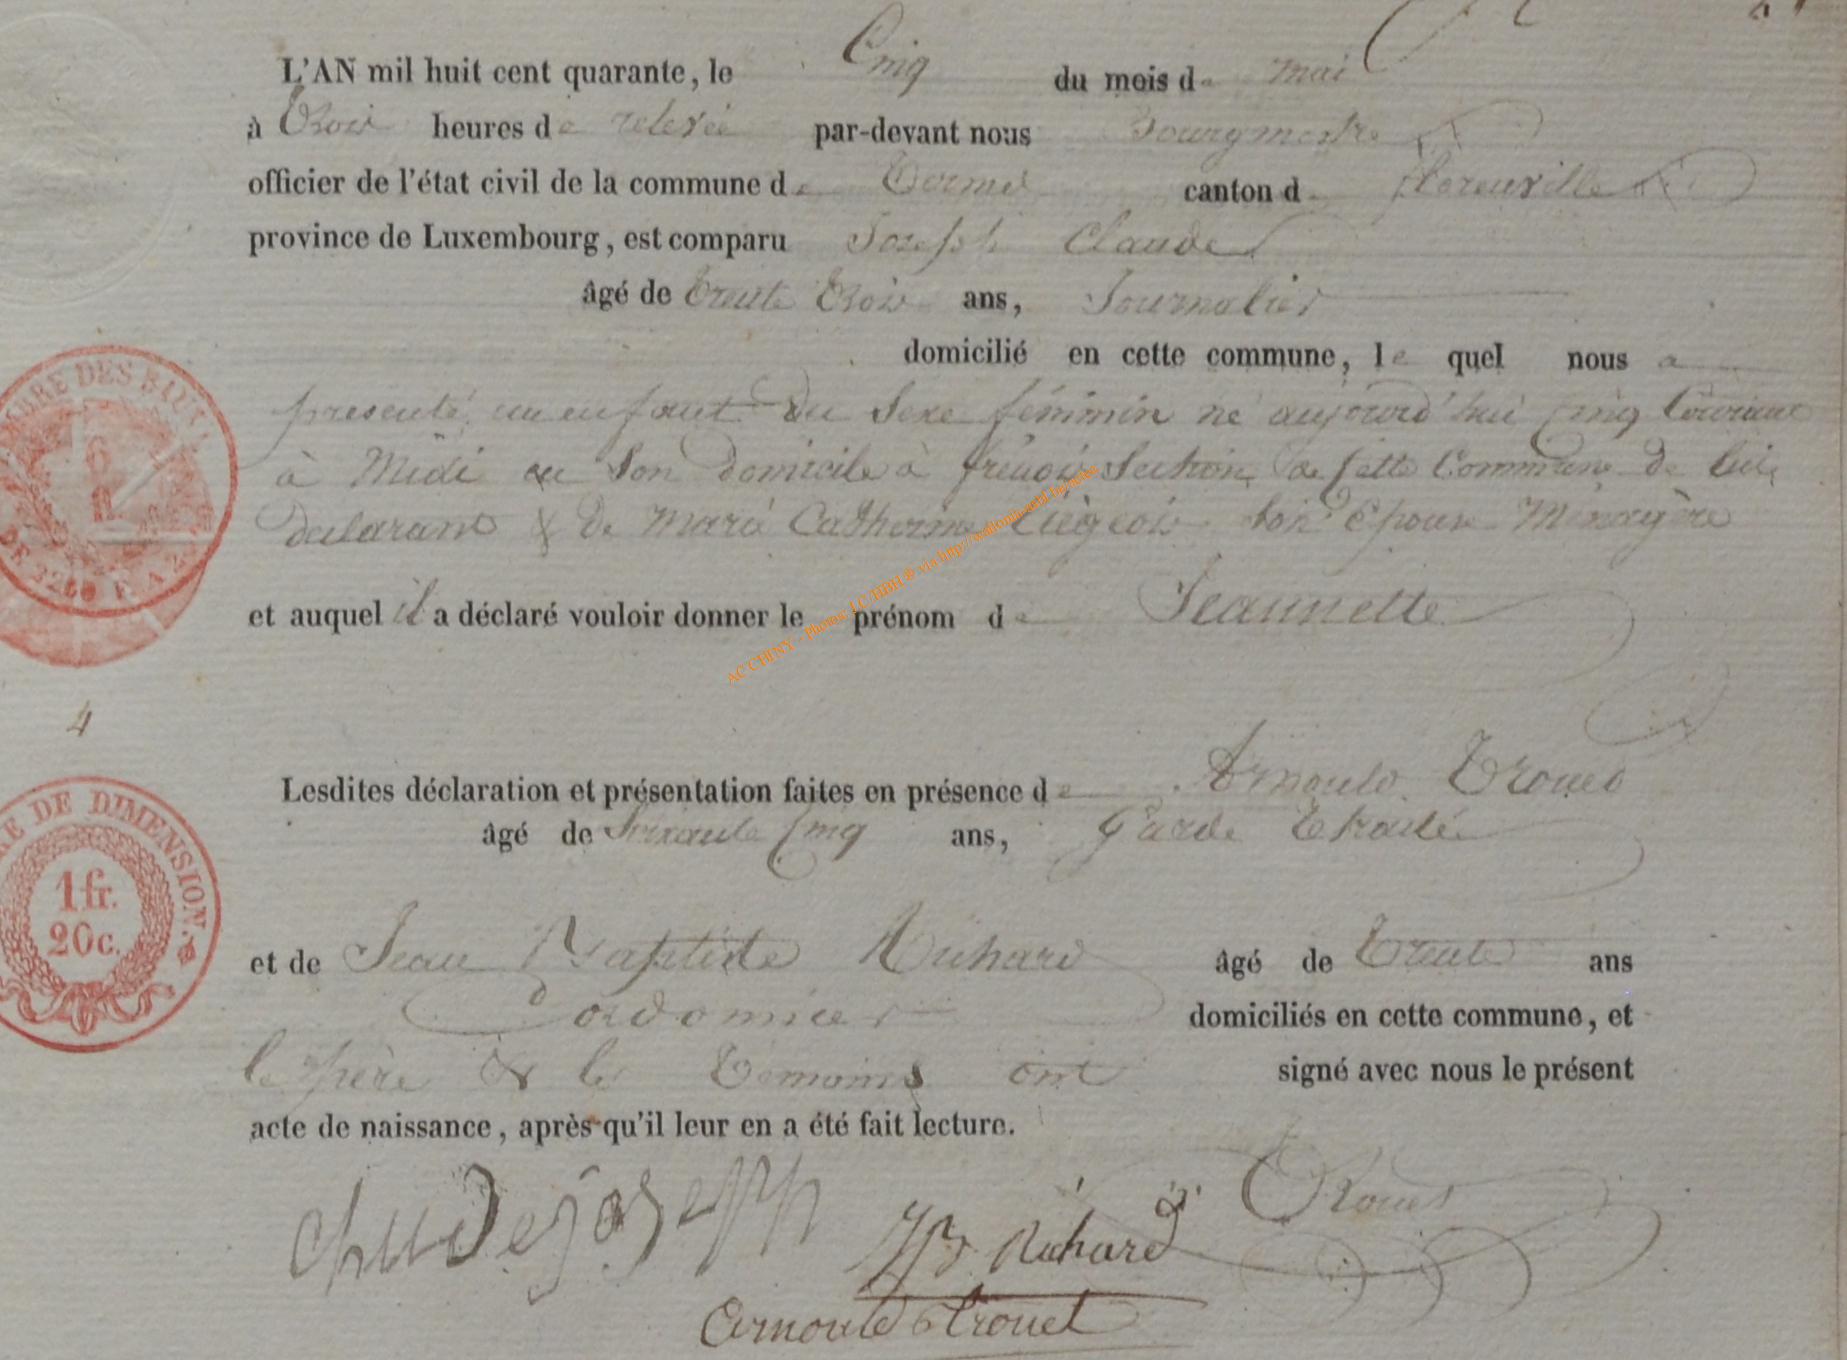 L'AN mil huit cent quarante, le Cinq du mois de mai
à trois heures de relevée par-devant nous Bourgmestre
officier de l'état civil de la commune de Termes canton de florenville
province de Luxembourg, est comparu Joseph Claude
âgé de trente trois ans, Journalier
domicilié en cette commune, le quel nous a
presenté un enfant du Sexe féminin né aujourd'hui Cinq Courant
à Midi en Son domicile à frenois Section de Cette Commune de lui
declarant & de marie Catherine Liégeois Son Epouse Ménagère
et auquel il a déclaré vouloir donner le prénom de Jeannette
4
Lesdites déclaration et présentation faites en présence de Arnould Trouet
âgé de Soixante Cinq ans, Garde
et de Jean Baptiste Richard âgé de trente ans
Cordonnier domiciliés en cette commune, et
le père & les témoins ont signé avec nous le présent
acte de naissance, après qu'il leur en a été fait lecture.
claude joseph
JB Richard
Trouet
Arnould Trouet
TIMBRE DE DIMENSION.
1 fr.
20 c.
AC CHINY - Photos: J.C/HDH ® via http://wallonia-asbl.be/actes